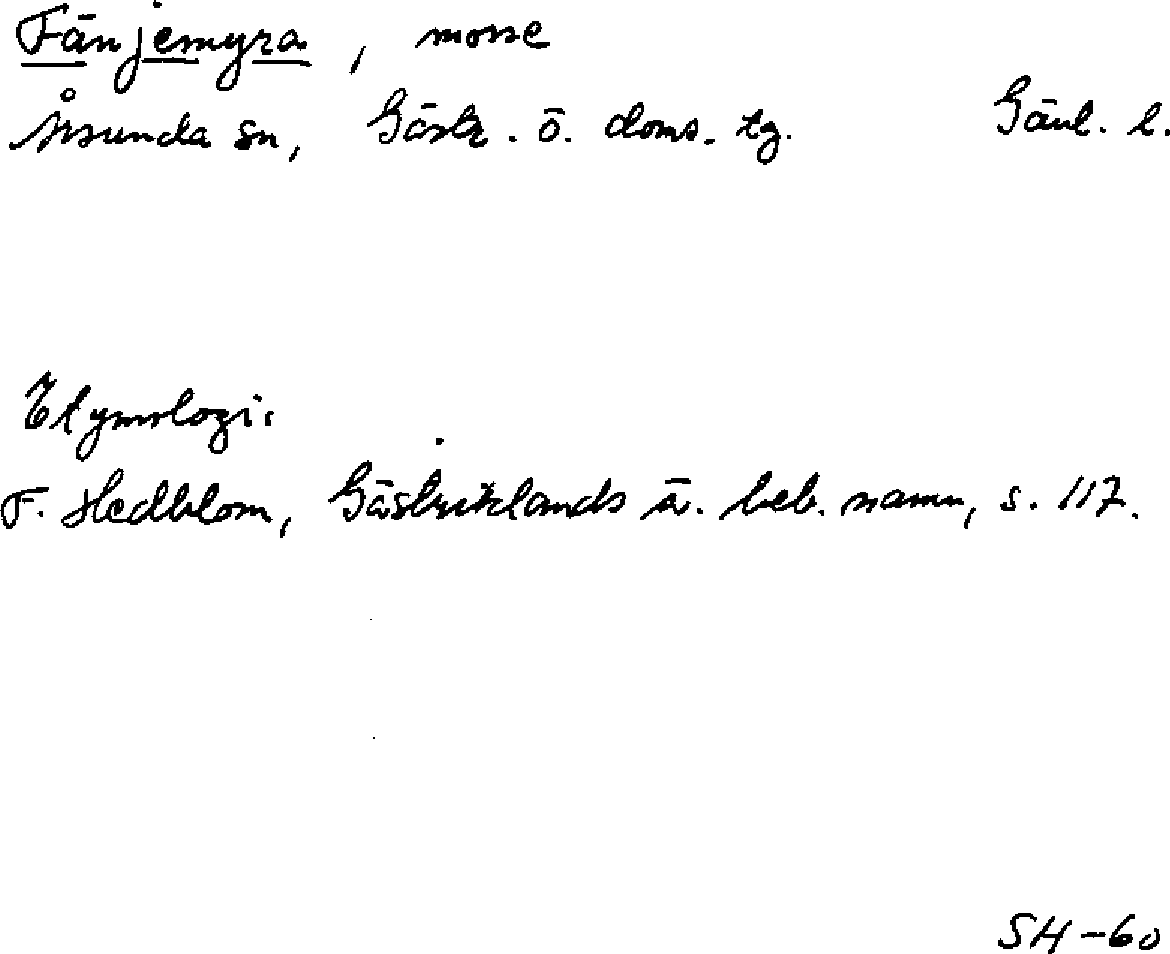 Fänjemyra, mosse
Årsunda sn, Gästr. ö. doms. tg. Gävl. l.
Etymologi.
F. Hedblom, Gästriklands ä. beb. namn, s. 117.
SH-60